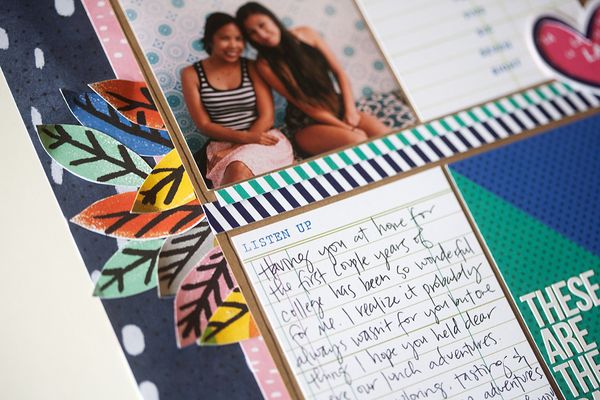 LISTEN UP
Having you at home for
the first couple years of
college has been so wonderful
for me. I realize it probably
always wasn't for you but one
thing I hope you held dear
were our lunch adventures.
exploring, tasting, &
adventures
THESE
ARE
THE